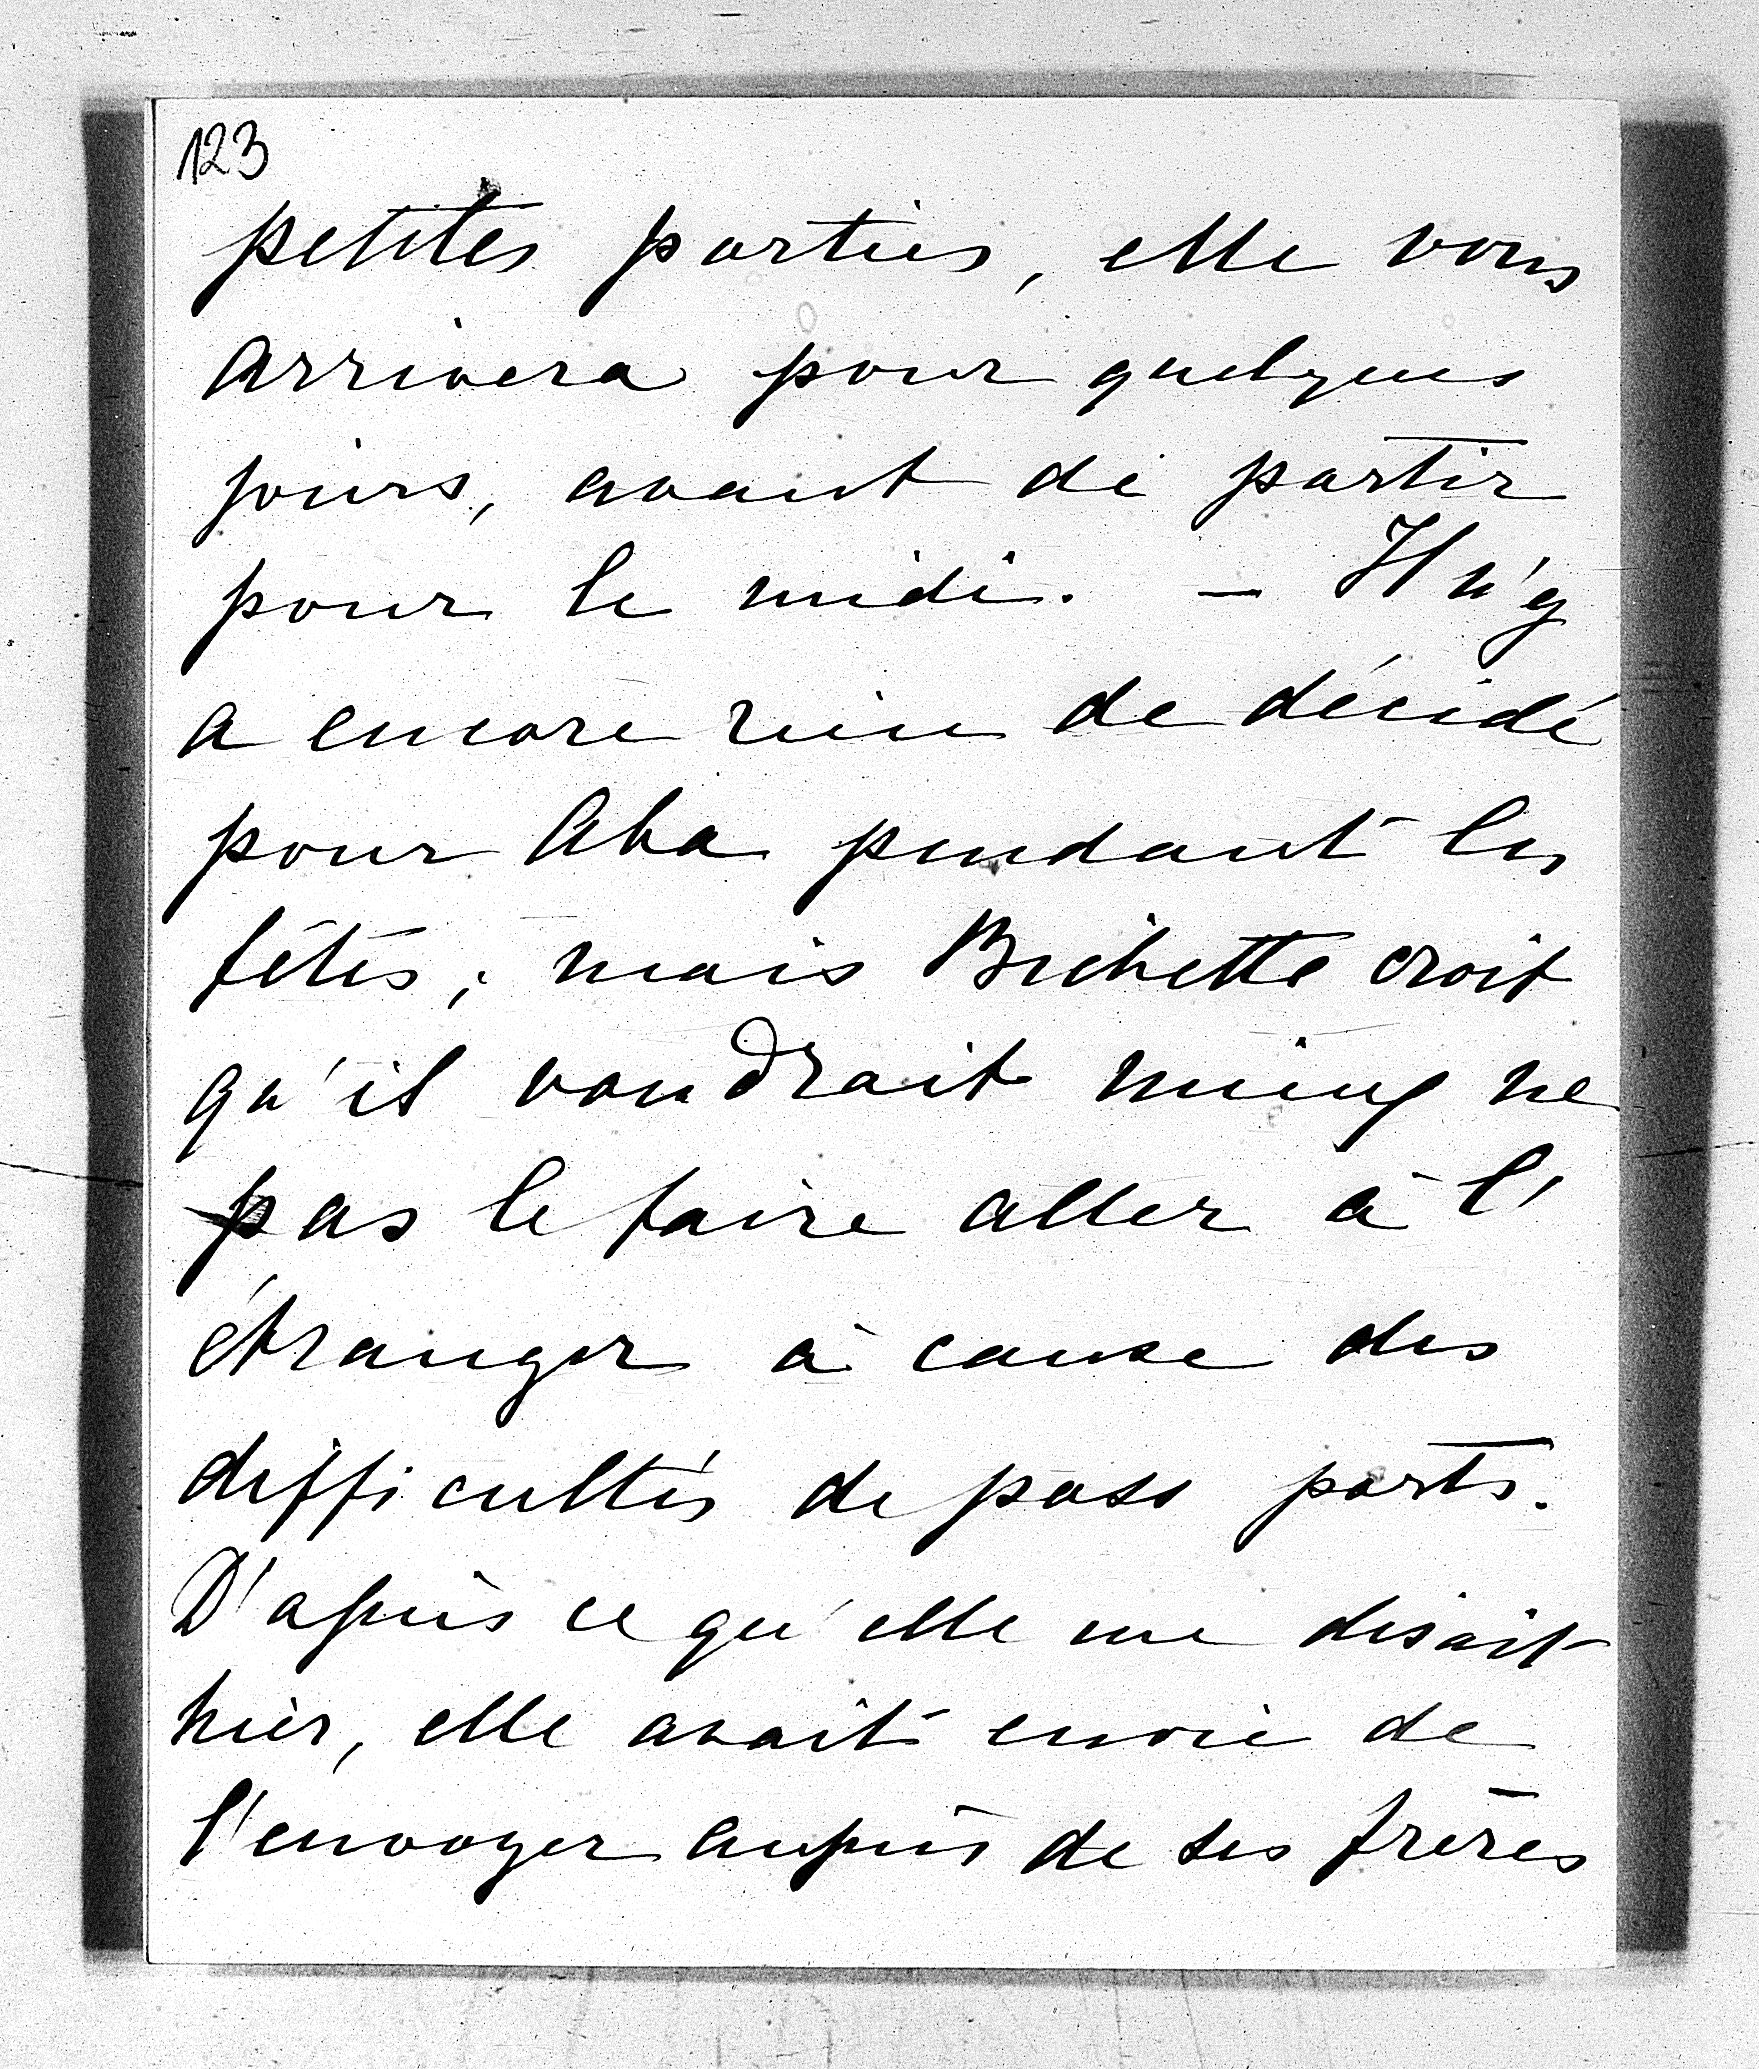 123
petites parties, elle vous
arrivera pour quelques
jours, avant de partir
pour le midi. — Il n'y
a encore rien de décidé
pour Aba pendant les
fêtes; mais Bichette croit
qu'il voudrait mieux ne
pas le faire aller à l'
étranger à cause des
difficultés de pass ports.
D'après ce qu'elle me disait
hier, elle avait envie de
l'envoyer auprès de ses frères